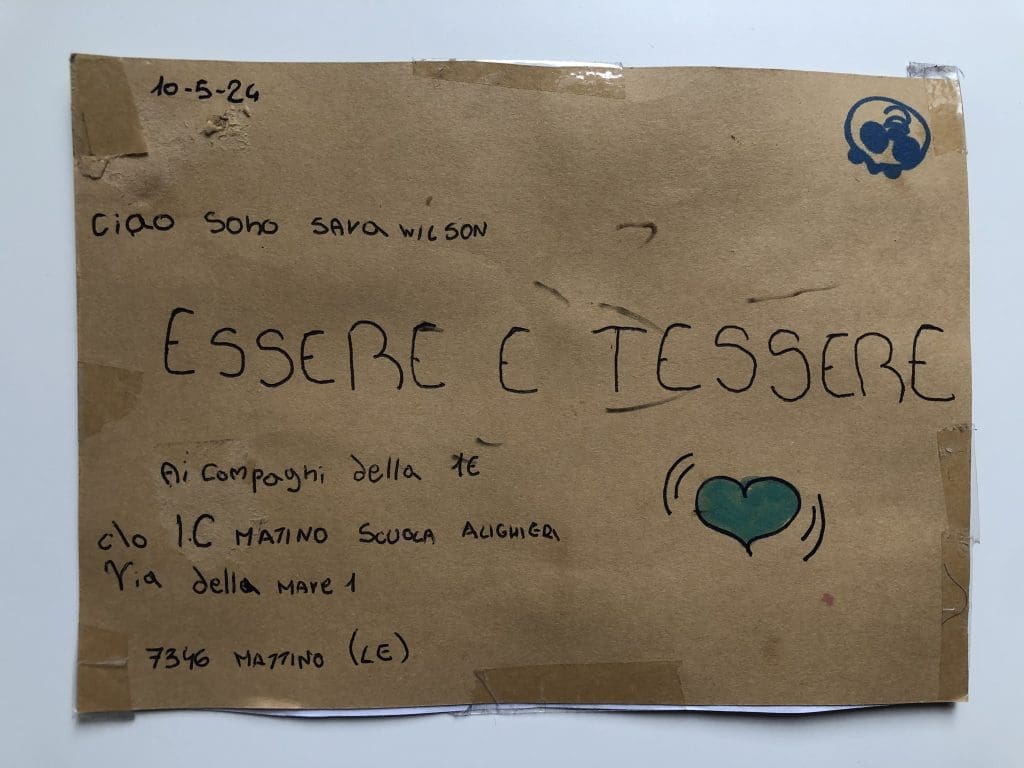 10-5-24
Ciao sono sara WILSON
ESSERE E TESSERE
Ai Compagni della 1E
c/o I.C MATINO SCUOLA ALIGHIERI
Via della MARE 1
7346 MATTINO (LE)